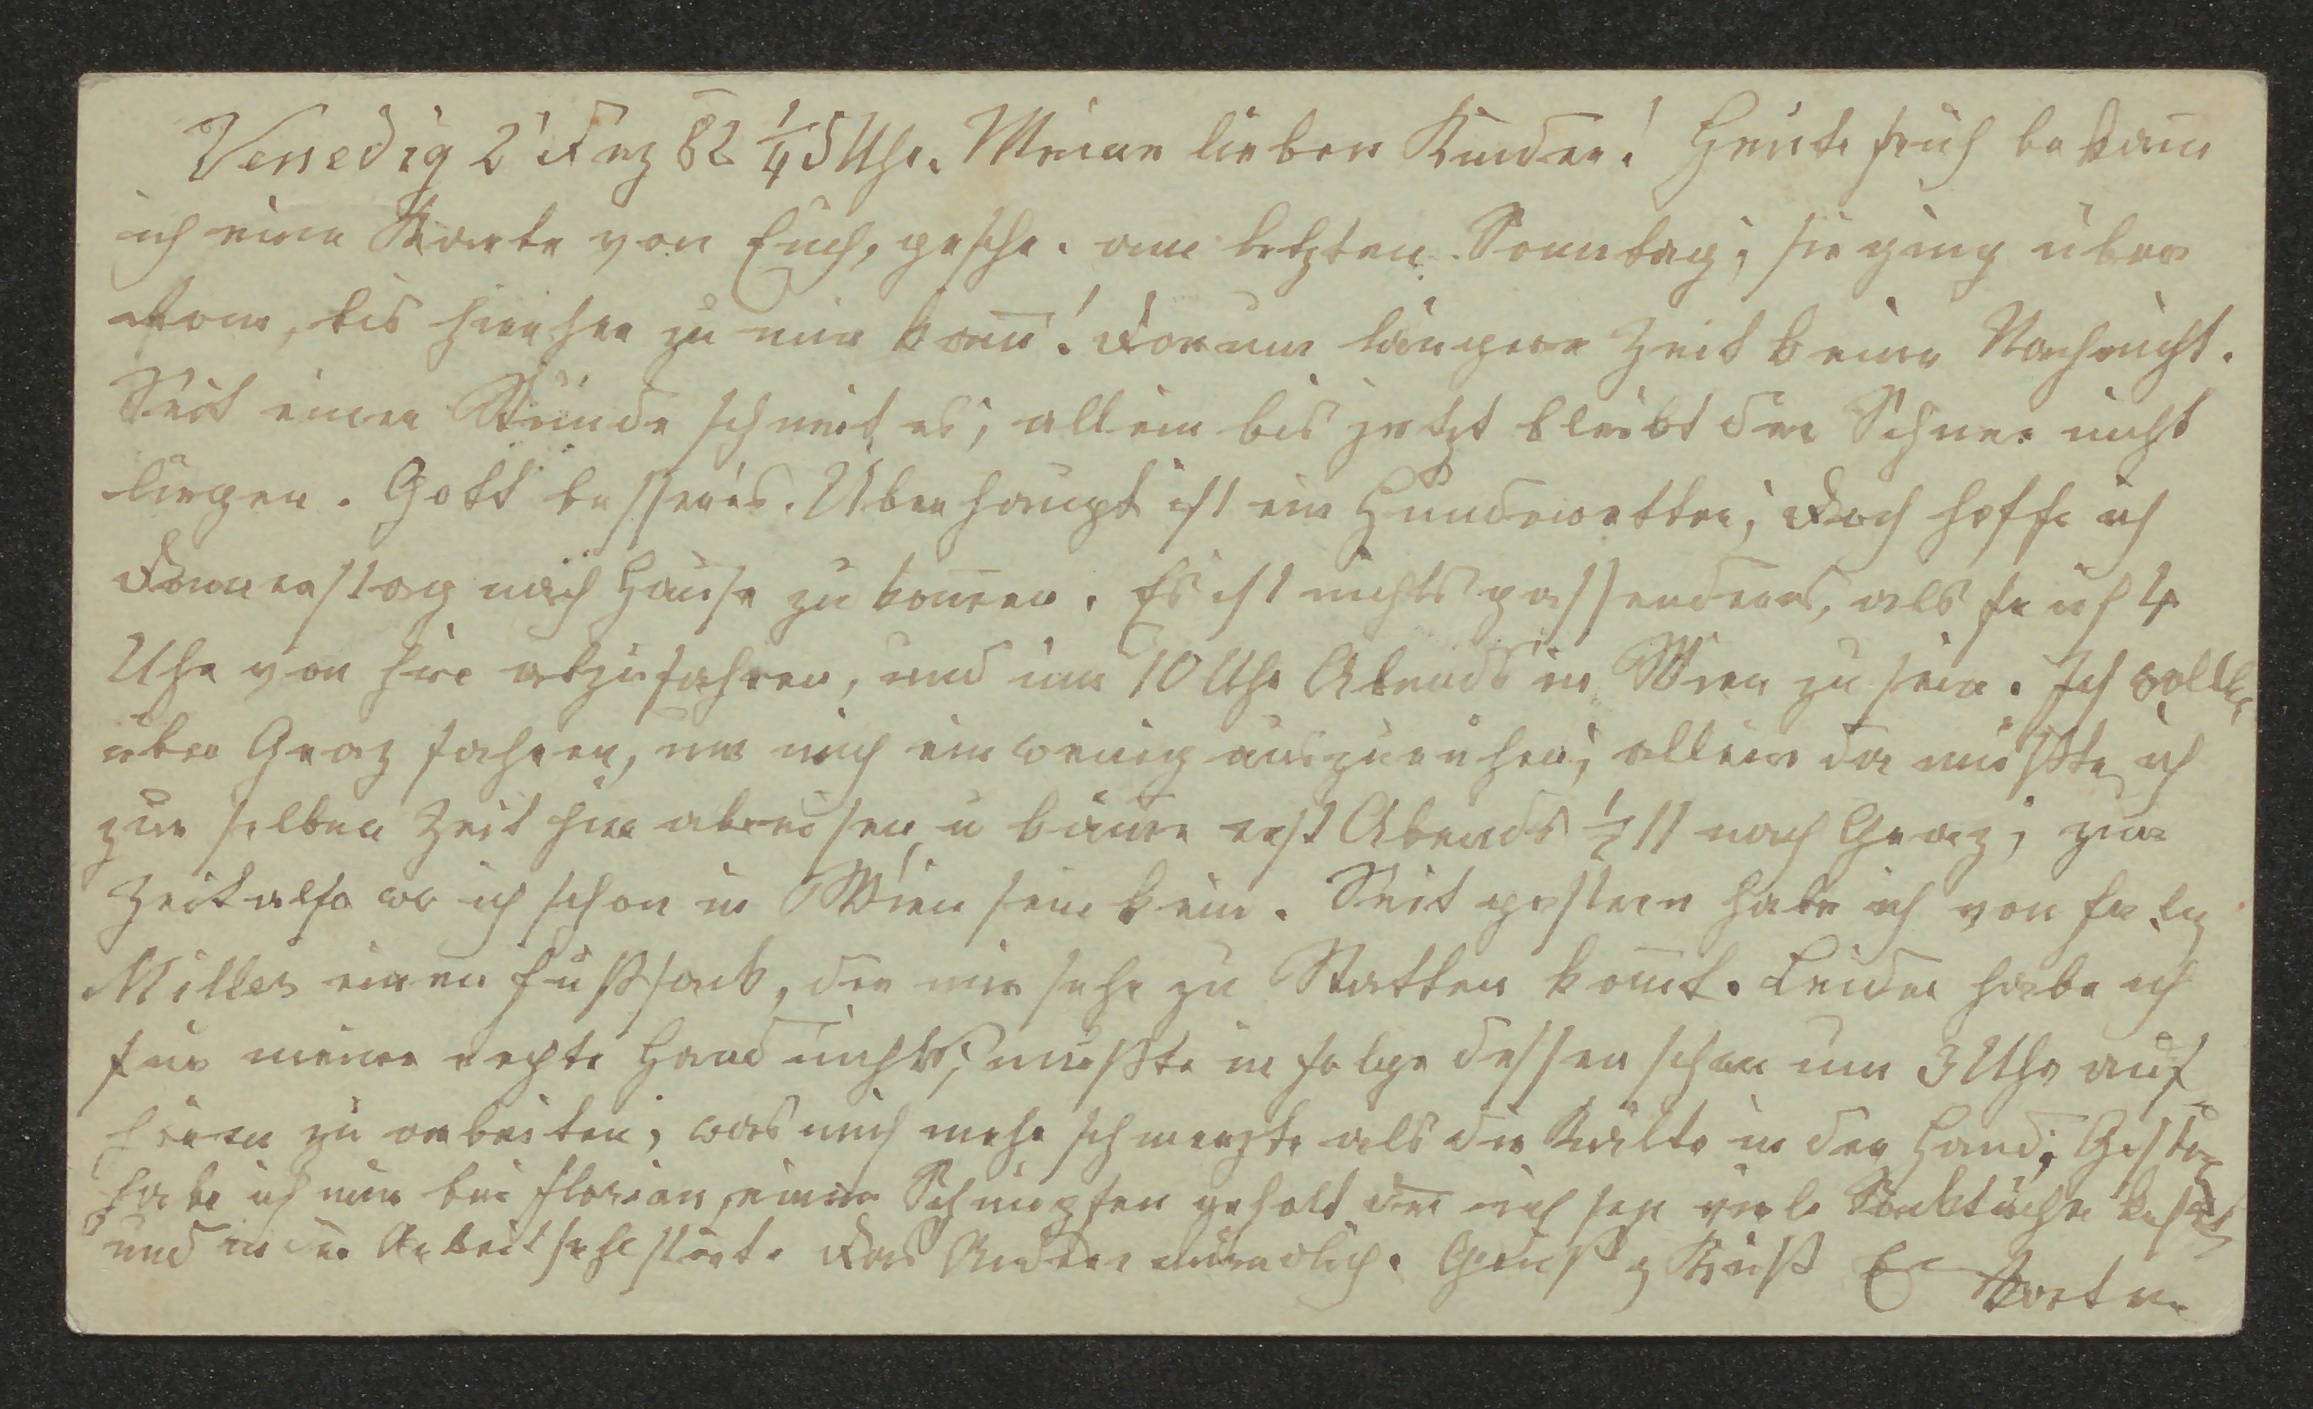 Venedig 2' Dez 82 1/4 5 Uhr. Meine lieben Kinder! Heute früh bekam̄
ich eine Karte von Euch, geschr. am letzten Sonntag; sie ging über
Rom, bis hierher zu mir kam̄! Darum längere Zeit keine Nachricht.
Seit einer Stunde schneit es; allein bis jetzt bleibt der Schnee nicht
liegen. Gott besser's. Überhaupt ist ein Hundewetter; doch hoffe ich
Donnerstag nach Hause zu kom̄en. Es ist nichts passenderes, als früh 4
Uhr von hier abzufahren, und um 10 Uhr Abends in Wien zu sein. Ich wollte
über Graz fahren, um mich ein wenig auszuruhen; allein da müßte ich
zur selben Zeit hier abreisen u käme erst Abends 1/2 11 nach Graz; zur
Zeit also wo ich schon in Wien sein kan̄. Seit gestern habe ich von
Miller einen Fußsack, der mir sehr zu Statten kom̄t. Leider habe ich
für meine rechte Hand nichts; mußte in folge dessen schon um 3 Uhr auf-
hören zu arbeiten, was mich mehr schmerzte als die Kälte in der Hand. Gestern
habe ich mir bei Florian einen Schnupfen geholt der mich sehr viele Sacktücher kostet
und in der Arbeit sehr stört. Das Andere mündlich. Gruß & Kuß E Vater